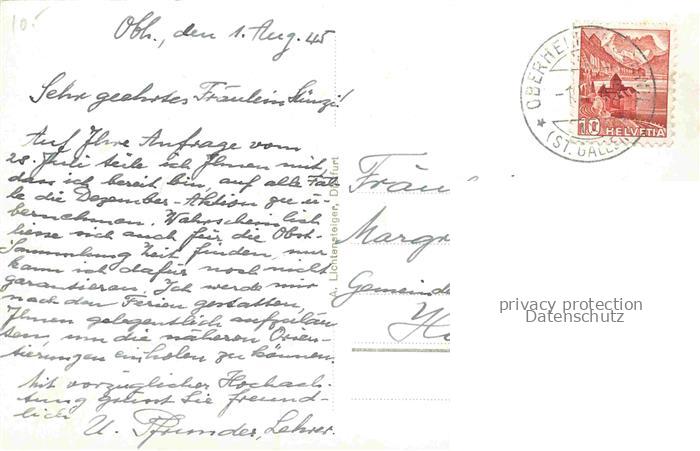 10.-
Obh., den 1. Aug. 45
Sehr geehrtes Fräulein Künzi!
Auf Ihre Anfrage vom
28. Juli teile ich Ihnen mit,
dass ich bereit bin, auf alle Fäl-
le die Dezember-Aktion zu ü-
bernehmen. Wahrscheinlich
liesse sich auch für die Obst-
Sammlung Zeit finden, nur
kann ich dafür noch nicht
garantieren. Ich werde mir
nach den Ferien gestatten,
Ihnen gelegentlich aufzuläu-
ten, um die näheren Orien-
tierungen einholen zu können.
Mit vorzüglicher Hochach-
tung grüsst Sie freund-
lich
U. Pfrunder, Lehrer.
Lichtensteiger, Dietfurt
Fräu
Margr
Gemeinde
OBERHEL
(ST. GALLEN)
10 HELVETIA
privacy protection
Datenschutz